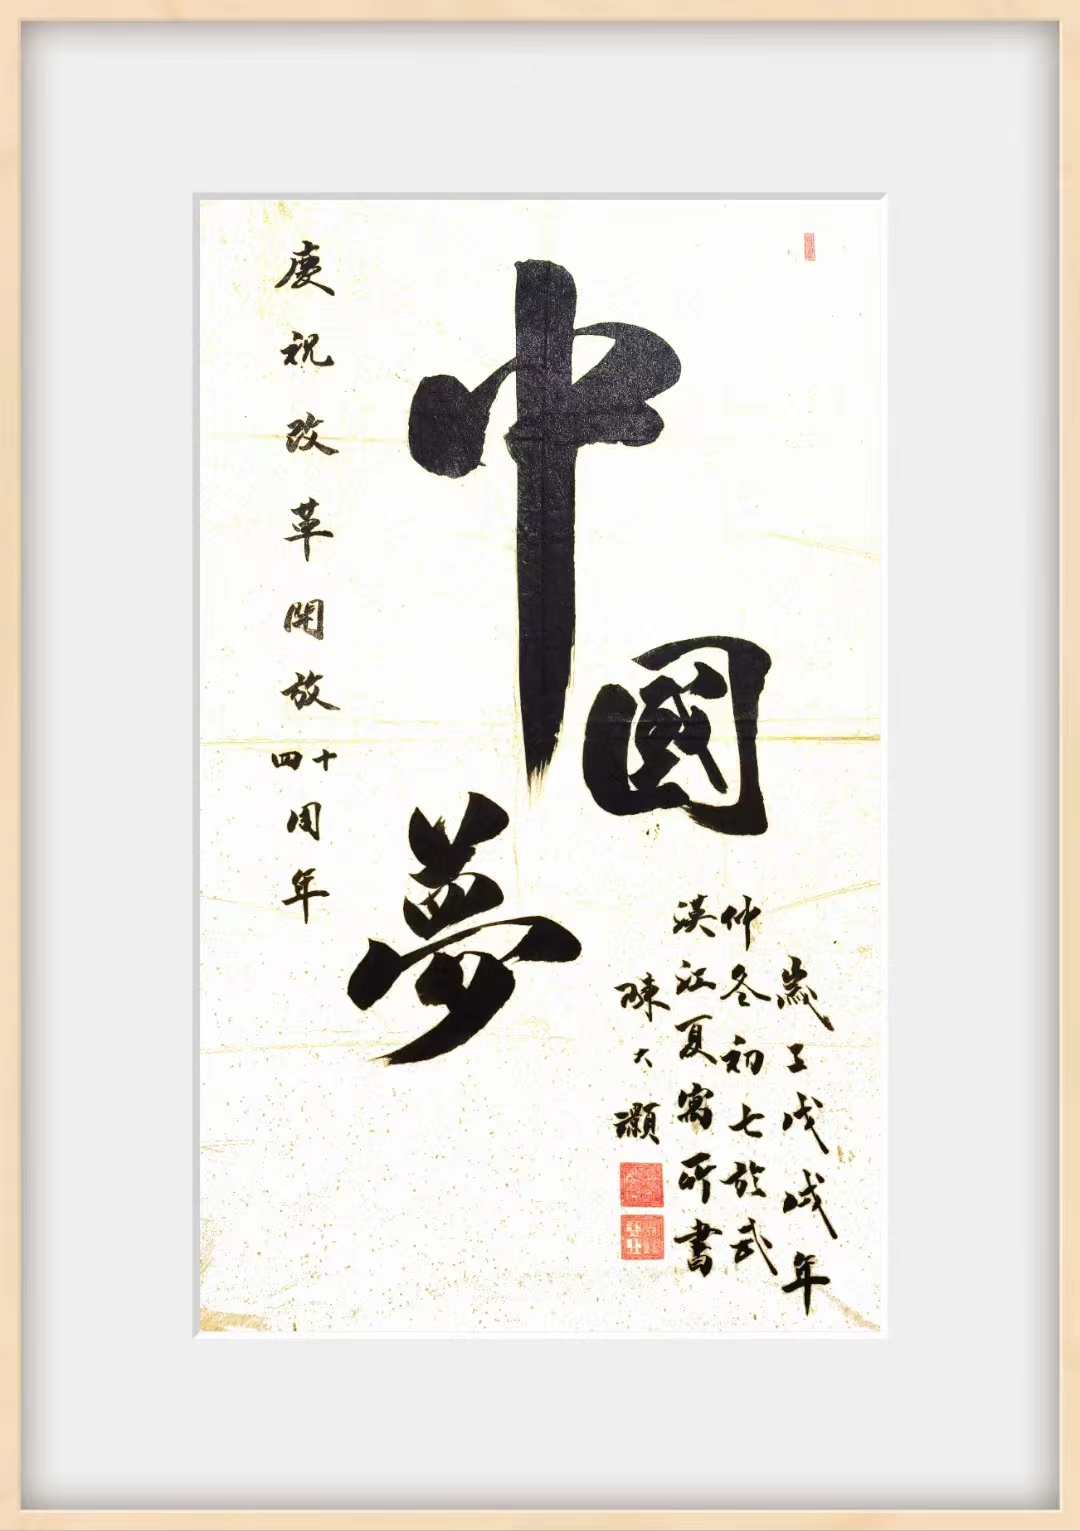 中國夢
慶祝改革開放四十周年
歲戊戌年
仲冬初七於武
漢江夏寓所書
陳大灝